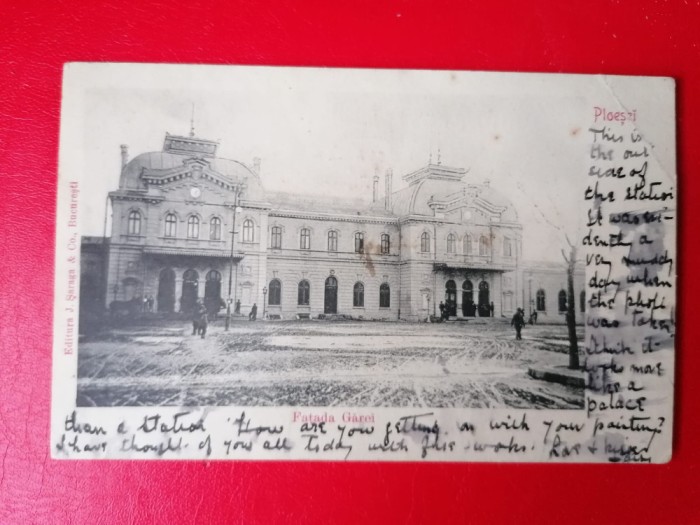 Ploești
Editura J. Șaraga & Co., București
This is
the out
side of
the station
It was evi-
dently a
very muddy
day when
the photo
was taken
I think it
looks more
like a
palace
Fațada Gărei
than a station. How are you getting on with your painting?
I have thought of you all today with fire-works. Love & kisses